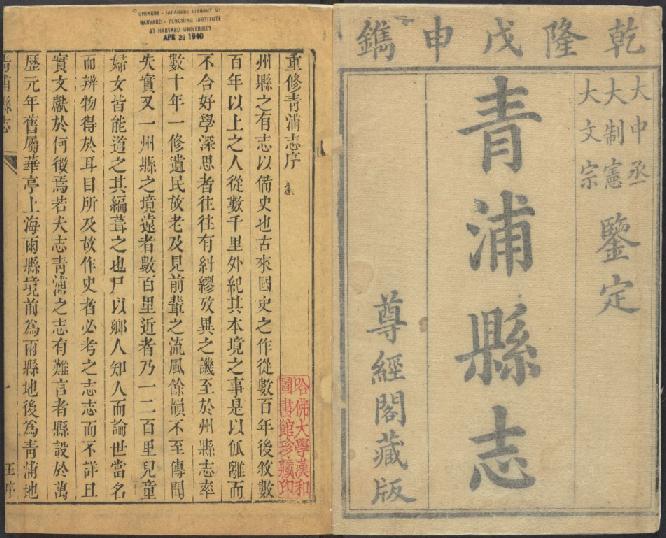 乾隆戊申鐫
大中丞
大制憲
大文宗
鑒定
青浦縣志
尊經閣藏版
CHINESE-JAPANESE LIBRARY OF
HARVARD-YENCHING INSTITUTE
AT HARVARD UNIVERSITY
APR 20 1940
重修青浦志序
州縣之有志以備史也古來國史之作從數百年後敘數
百年以上之人從數千里外紀其本境之事是以仳離而
不合好學深思者往往有糾繆攷異之譏至於州縣志率
數十年一修遺民故老及見前輩之流風餘韻不至傳聞
失實又一州縣之境遠者數百里近者乃一二百里兒童
婦女皆能道之其編葺之也尸以鄉人知人而論世當名
而辨物得於耳目所及故作史者必考之志志而不詳且
實文獻於何徵焉若夫志青浦之志有難言者縣設於萬
歷元年舊屬華亭上海兩縣境前為兩縣地後為青浦地
青浦縣志
一
王序
哈佛大學漢和
圖書館珍藏印